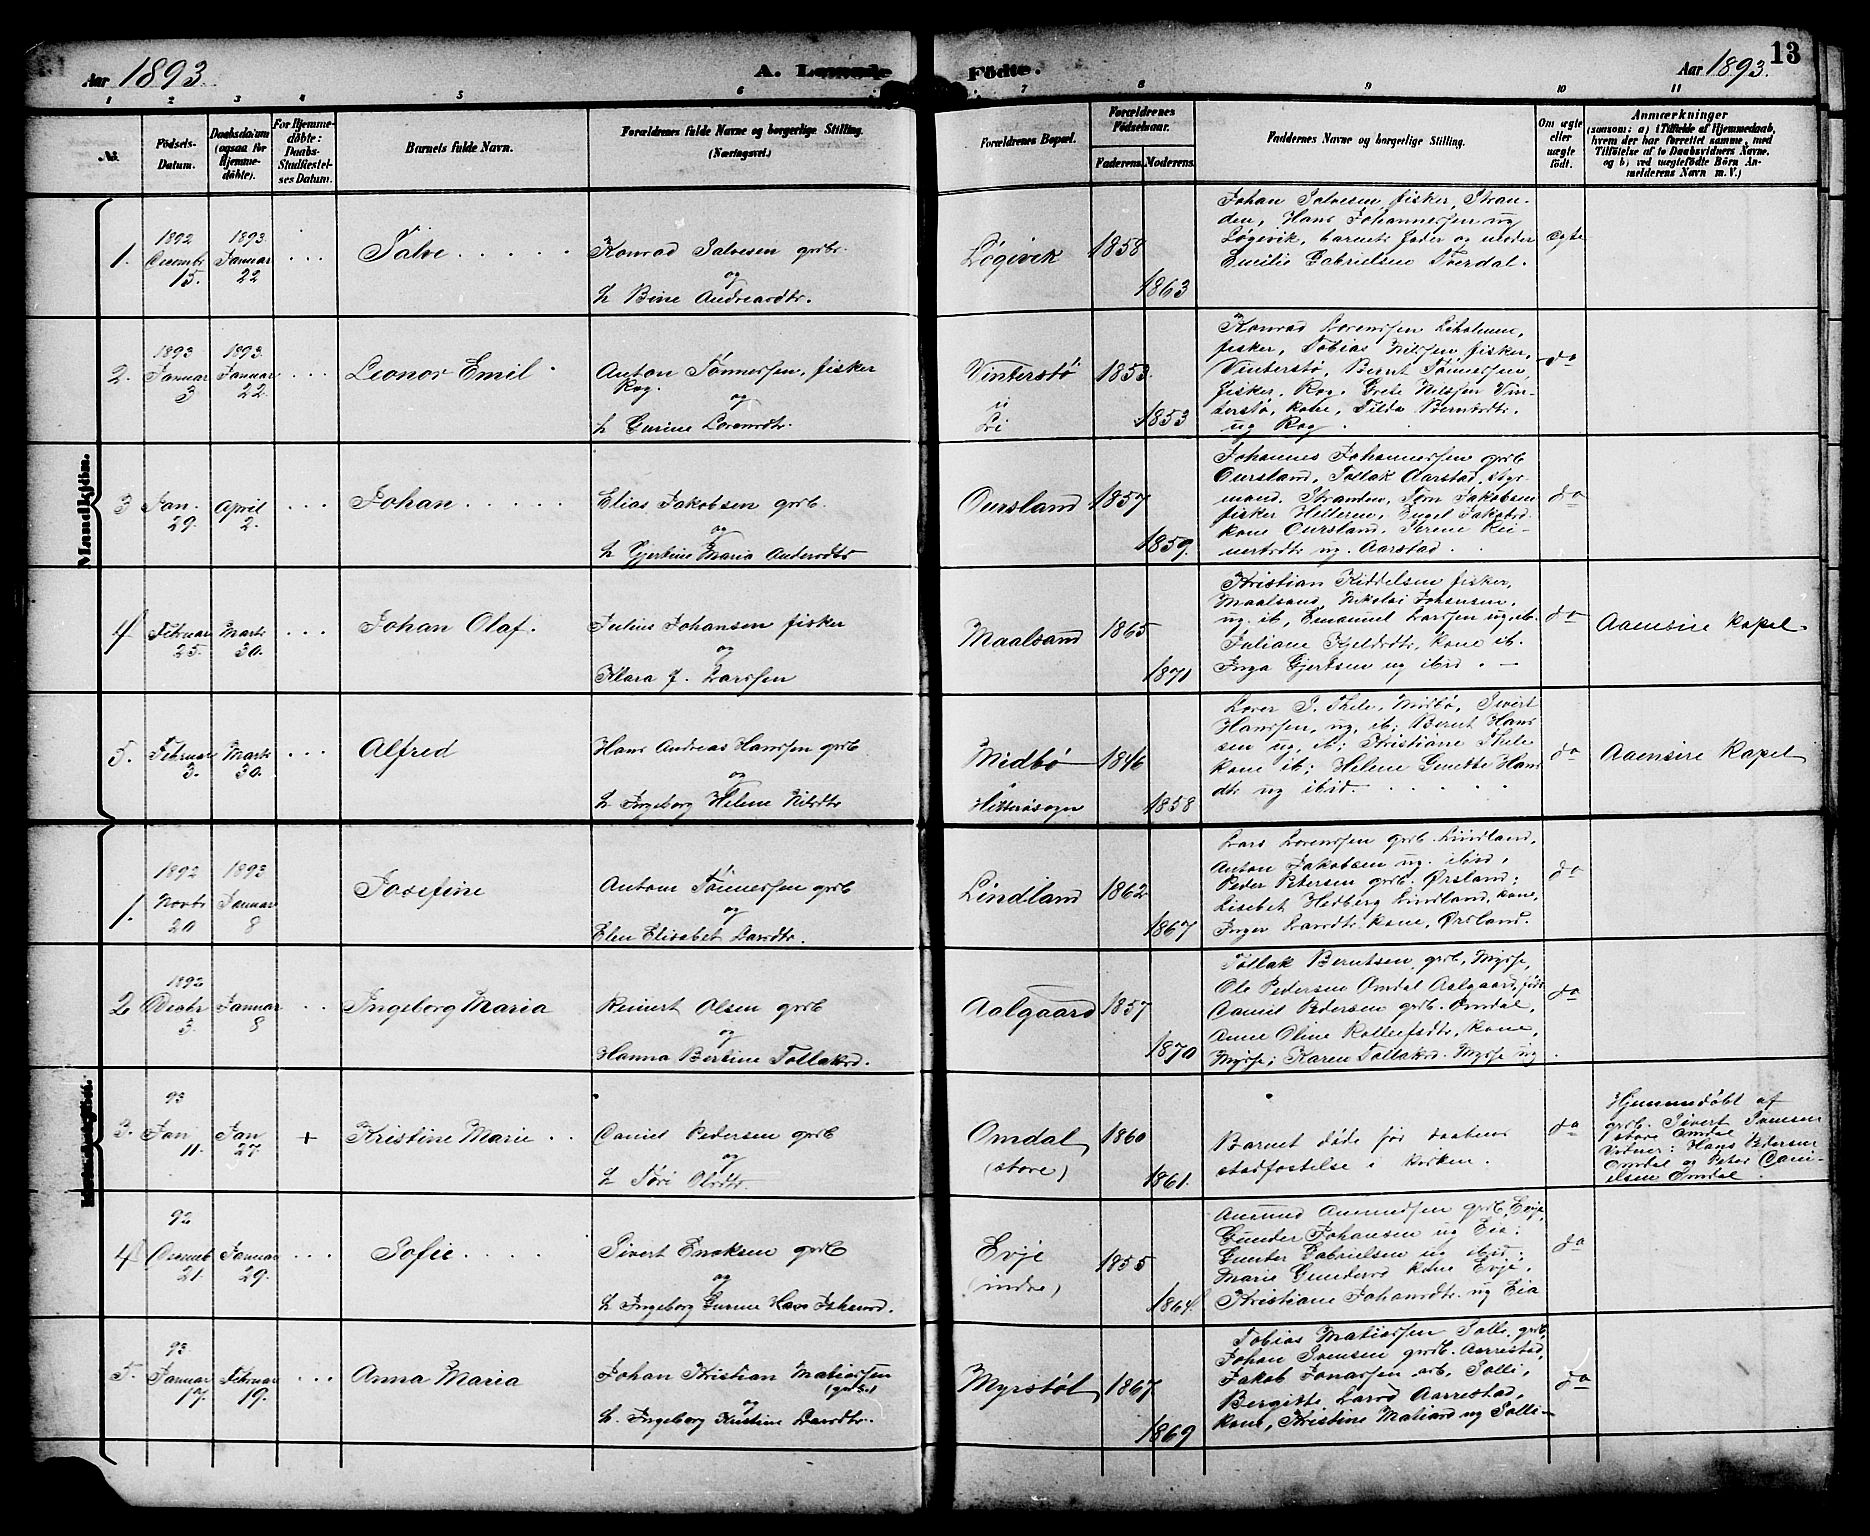 Aar 1893.
A. Levende Födte.
13
Aar 1893.
1 2 3 4 5 6 7 8 9 10 11
№
Födsels-Datum.
Daabsdatum (ogsaa for Hjemmedöbte).
For Hjemmedöbte: Daabs-Stadfæstelses Datum.
Barnets fulde Navn.
Forældrenes fulde Navne og borgerlige Stilling. (Næringsvei.)
Forældrenes Bopæl.
Forældrenes Födselsaar.
Faderens. Moderens.
Faddernes Navne og borgerlige Stilling.
Om ægte eller uægte födt.
Anmærkninger
(saasom: a) i Tilfælde af Hjemmedaab,
hvem der har forrettet samme, med
Tilföielse af to Daabsvidners Navne,
og b) ved uægtefödte Börn Anmelderens Navn m. V.)
Mandkjön.
1. 1892 Decembr 15. 1893 Januar 22
Salve
Konrad Salvesen grdbr.
og
h Bine Andreasdtr.
Løgevik 1858 1863
Johan Salvesen fisker, Stranden, Hans Johannessen ug
Løgevik, barnets fader og moder
Emilie Gabrielsen Tverdal.
ægte
2. 1893 Januar 3 1893 Januar 22
Leonor Emil
Anton Tønnessen, fisker
Rog.
og
h Gurine Lorensdtr.
Vinterstø i 1853 1853
Konrad Lorenssen
fisker, Tobias Nilssen fisker,
Vinterstø, Bernt Tønnessen,
fisker, Rog, Grete Nilssen Vinterstø, kone, Tilda Berntsdtr.
ug Rog.
do
3 Jan. 29. April 2.
Johan
Elias Jakobsen grdb.
og
h Gjertine Maria Andersdtr
Oursland 1857 1859.
Johannes Johannessen grdb
Oursland, Tollak Aarstad, styrmand. Stranden, Tørn Jakobsen
fisker Helleren, Engel Jakobsd.
kone Oursland. Serene Reinertsdtr ug. Aarstad.
do
4 Februar 25. Marts 30.
Johan Olaf.
Julius Johansen fisker
og
Klara f. Larssen
Maalsand 1865 1871
Kristian Kiddelsen fisker,
Maalsand, Nikolai Johansen,
ug. ib, Emanuel Larssen ug. ib.
Juliane Kjeldsdtr, kone ib.
Inga Gjertsen ug ibid.
do
Aaensire Kapel.
5. Februar 3. Marts 30.
Alfred
Hans Andreas Hanssen grdb
og
h Ingeborg Helene Nilsdtr
Midbø Hitterøsogn 1846 1858
Lover S. Thele, Midbø, Sivert
Hanssen, ug. ib; Bernt Hanssen ug, ib; Kristiane Thele
kone ib; Helene Gunette Hansdtr ug ibid.
do
Aaensire Kapel
1. 1892 Novbr 20 1893 Januar 8
Josefine
Anton Tønnessen grdb
og
Elen Elisabet Larsdtr.
Lindland 1862 1867
Lars Lorenssen grdb. Lindland,
Anton Jakobsen ug. ibid,
Peder Petersen grdb. Ørsland;
Lisebet Hedberg Lindland, kone,
Inger Larsdtr kone, Ørsland.
do
2 1892 Decbr 3. Januar 8
Ingeborg Maria
Reinert Olsen grdb
og
Hanna Bertine Tollaksd.
Aalgaard 1857 1870
Tollak Berntsen, grdb, Myrse,
Ole Pedersen Omdal Aalgaard,
Daniel Pedersen grdb. Omdal,
Anne Oline Rollefsdtr, kone,
Myrse; Karen Tollaksd. Myrse ug
do
3. 93 Jan 11. Jan 27. +
Kristine Marie
Daniel Pedersen grdb
og
h Tøri Olsdtr.
Omdal (store) 1860 1861.
Barnet døde før daabens
stadfæstelse i kirken.
do
Hjemmedøbt af
grdb. Sivert Svensen
store Omdal
Vidner: Hans Pedersen
Omdal og Peter Danielsen Omdal.
4 92 Decemb 21. Januar 29.
Sofie
Sivert Enoksen grdb
og
h Ingeborg Gurine
Evje (indre) 1855 1864.
Aamund Aamundsen grdb, Evje,
Gunder Johansen ug Eia;
Gunder Gabrielsen ug ibid;
Marie Gundersd kone Evje,
Kristiane Johansdtr. ug Eia
do
5. 93 Januar 17. Februar 19.
Anna Maria
Johan Kristian Matiassen
og
h. Ingeborg Kristine Larsdtr.
Myrstøl 1867 1869
Tobias Matiassen Solli, grdb,
Johan Svensen grdb. Aarrestad,
Jakob Jonassen arb. Solli,
Bergitte Larsd Aarrestad,
kone, Kristine Matiasd ug Solli
do